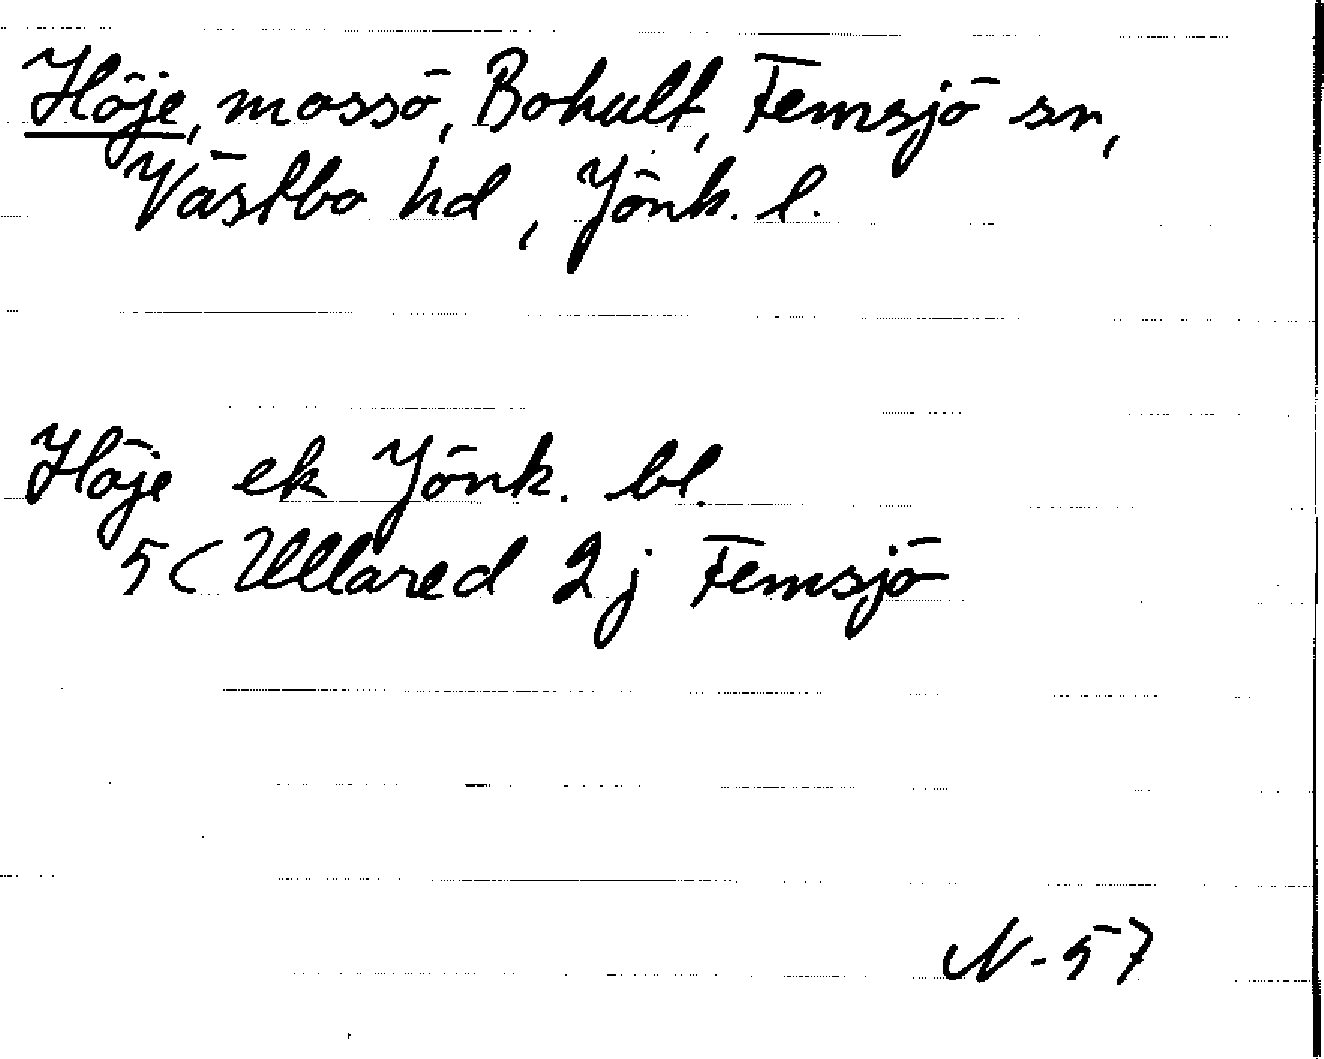 Höje, mossö, Bohult, Femsjö sn,
Västbo hd, Jönk. l.
Höje ek Jönk. bl.
5C Ullared 2j Femsjö
N-57